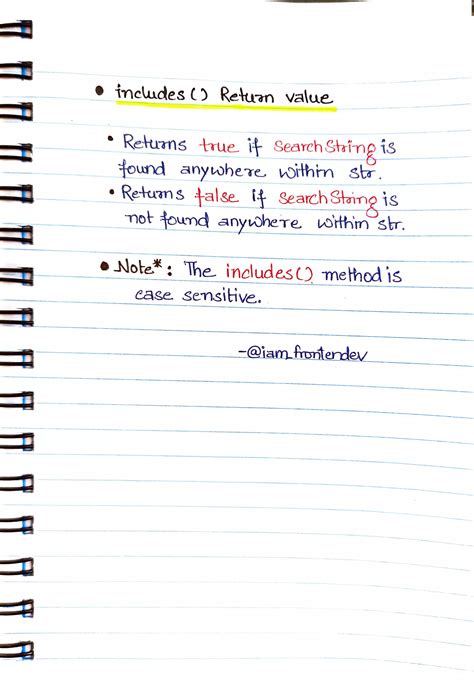 • includes() Return value
• Returns true if SearchString is
found anywhere within str.
• Returns false if SearchString is
not found anywhere within str.
• Note*: The includes() method is
case sensitive.
-@iam_frontendev